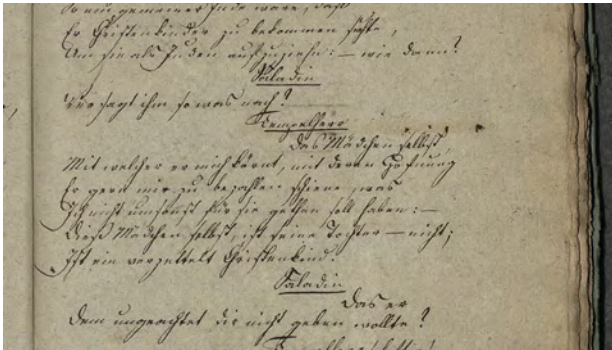 So ein gemeiner Jude wäre, daß
Er Christenkinder zu bekommen suchte,
Um sie als Juden aufzuziehn: — wie dann?
Saladin
Wer sagt ihm so was nach?
Tempelherr
Das Mädchen selbst,
Mit welcher er mich körnt, mit deren Hofnung
Er gern mir zu bezahlen schiene, was
Ich nicht umsonst für sie gethan soll haben: —
Dieß Mädchen selbst, ist seine Tochter — nicht;
Ist ein verzettelt Christenkind.
Saladin
Das er
Dem ungeachtet dir nicht geben wollte?